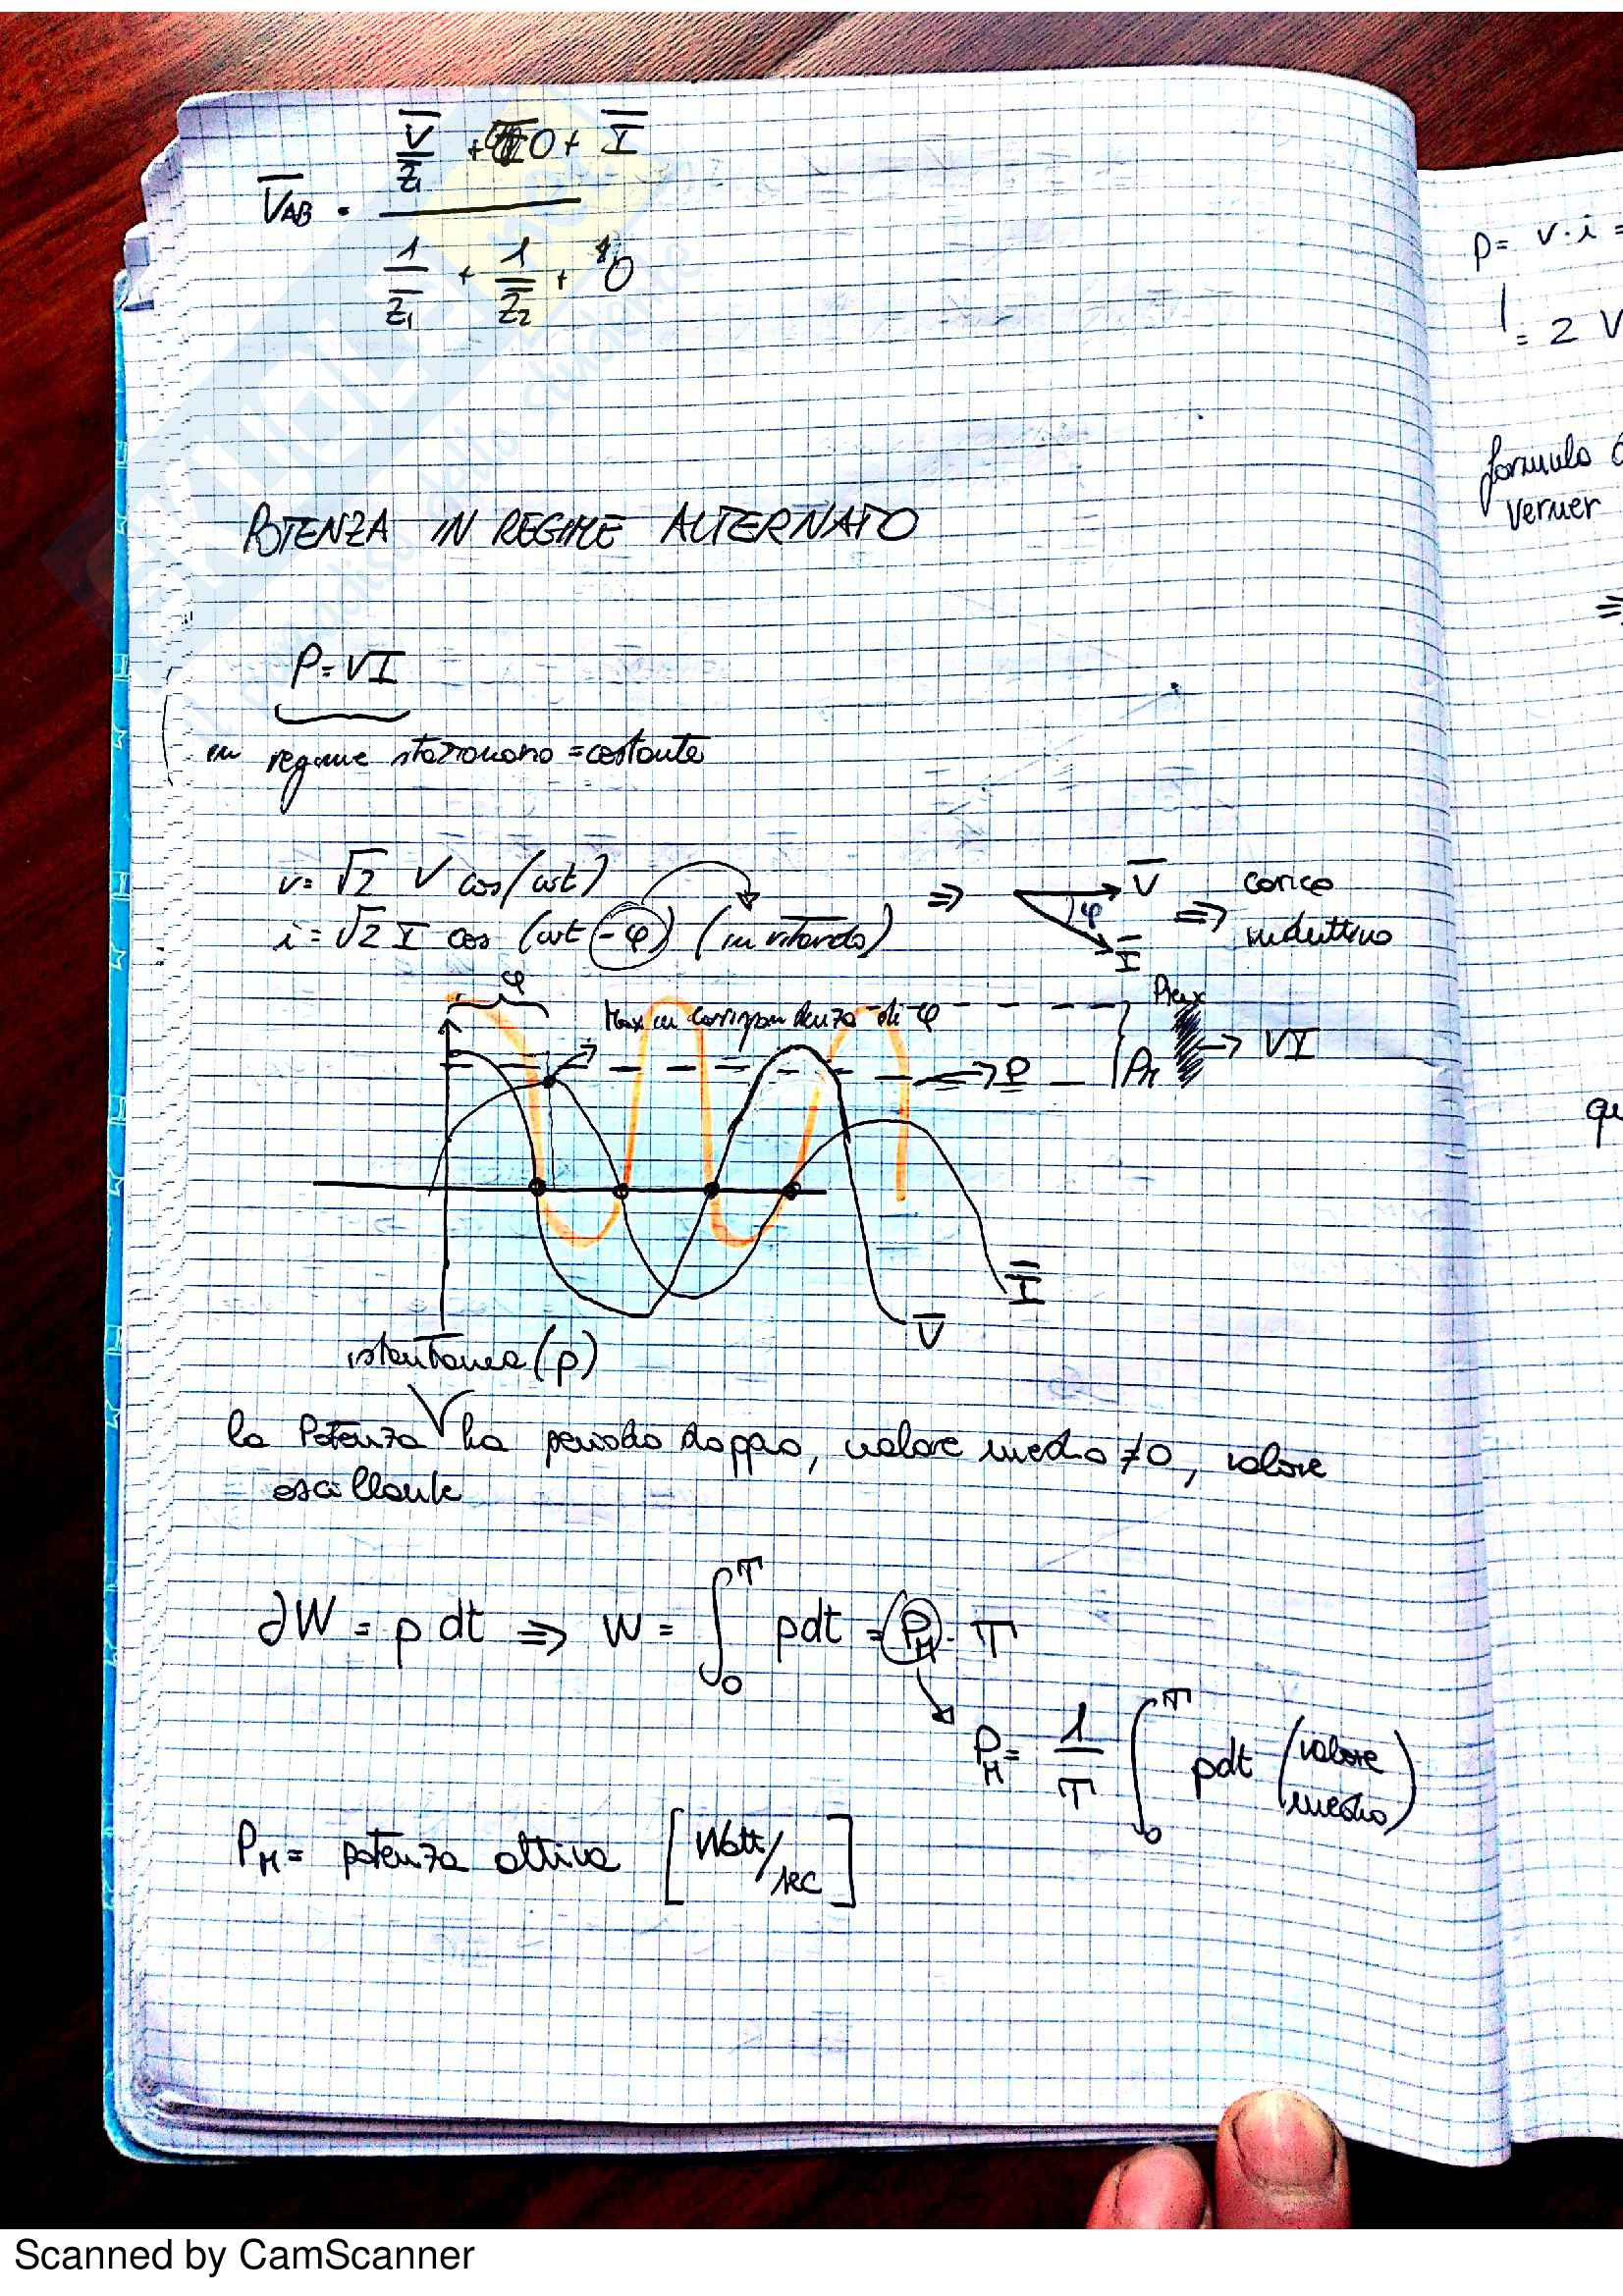 V̅/Z̅₁ + 0 + I̅
V̅AB =
1/Z̅₁ + 1/Z̅₂ + 0
POTENZA IN REGIME ALTERNATO
P = VI
in regime stazionario = costante
v = √2 V cos(ωt)
i = √2 I cos (ωt - φ) (in ritardo) ⇒ V̅ φ I̅ ⇒ carico induttivo
φ
Max in corrispondenza di φ
Pmax
P
PM
→ VI
I̅
V̅
istantanea (p)
la Potenza ha periodo doppio, valore medio ≠ 0, valore
oscillante
∂W = p dt ⇒ W = ∫₀ᵀ pdt = PM · T
PM = 1/T ∫₀ᵀ pdt (valore medio)
PM = potenza attiva [Watt/sec]
p = v·i =
= 2 V
formula
Verner
⇒
qu
Scanned by CamScanner